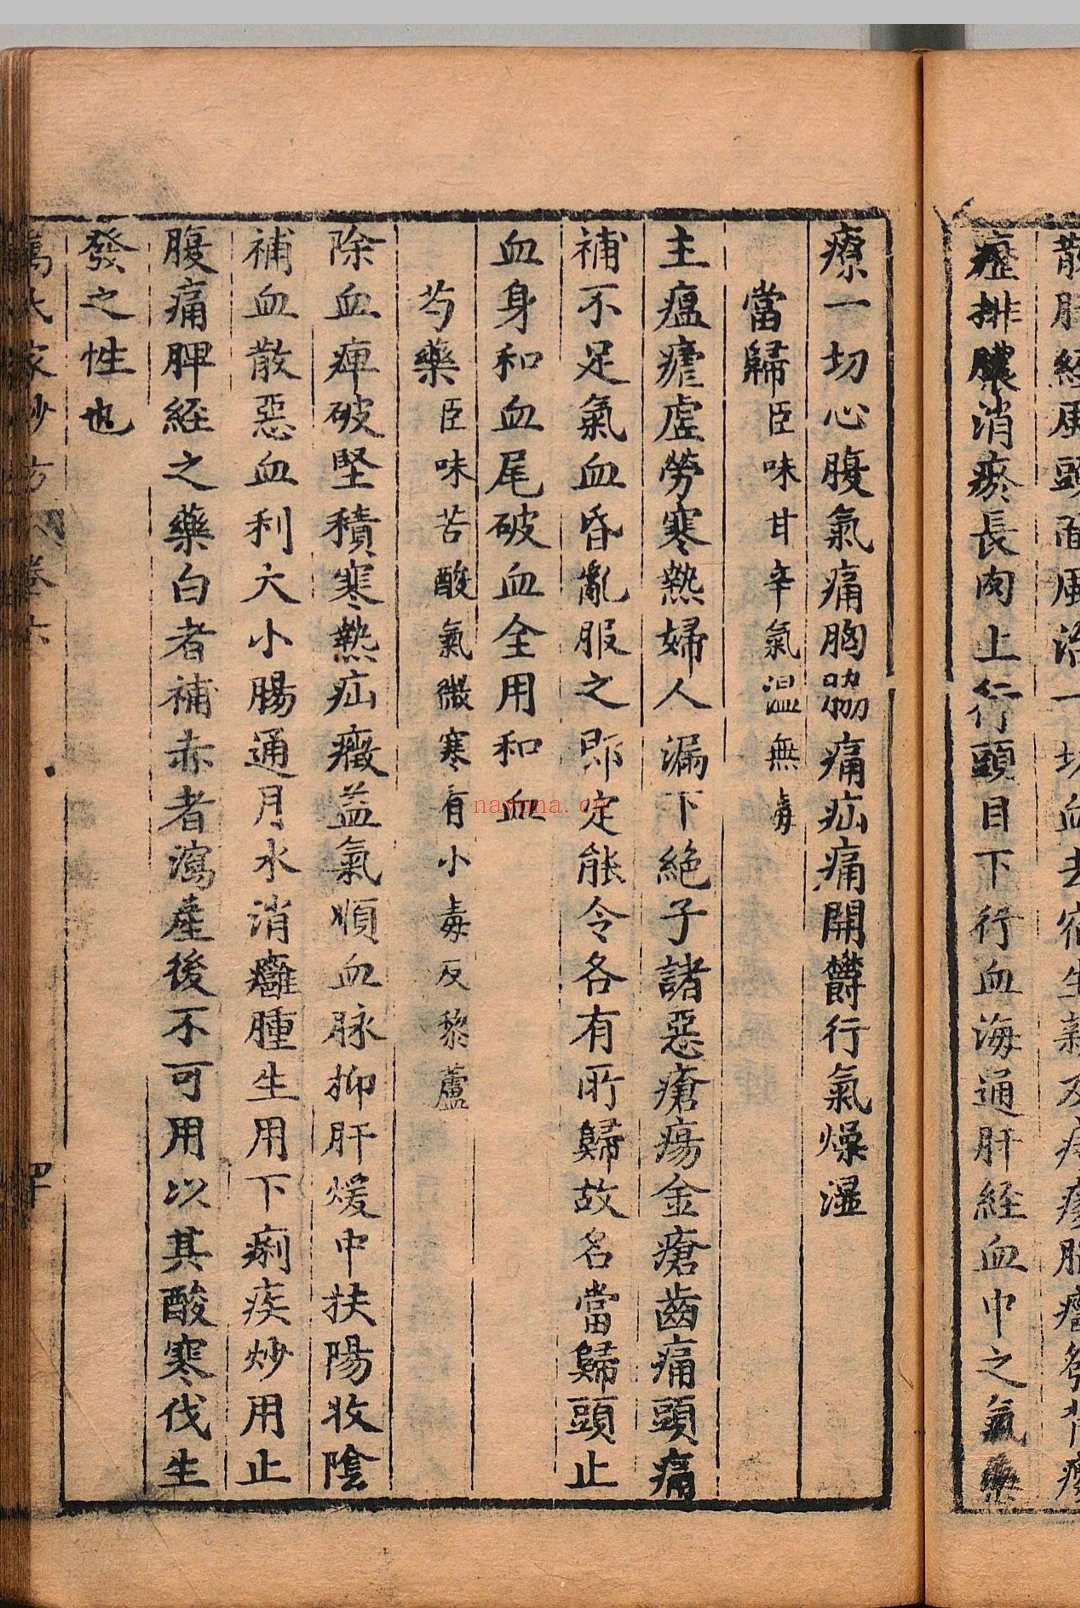 瘂排膿消瘀長肉上行頭目下行血海通肝経血中之氣藥
療一切心腹氣痛胸脇痛疝痛開欝行氣燥濕
當歸臣味甘辛氣溫無毒
主瘟瘧虛勞寒熱婦人漏下絶子諸惡瘡瘍金瘡齒痛頭痛
補不足氣血昏亂服之即定能令各有所歸故名當歸頭止
血身和血尾破血全用和血
芍藥臣味苦酸氣微寒有小毒反黎蘆
除血痺破堅積寒熱疝瘕益氣順血脉抑肝煖中扶陽收陰
補血散惡血利大小腸通月水消癰腫生用下痢疾炒用止
腹痛脾経之藥白者補赤者瀉產後不可用以其酸寒伐生
發之性也
萬氏家抄方 卷六